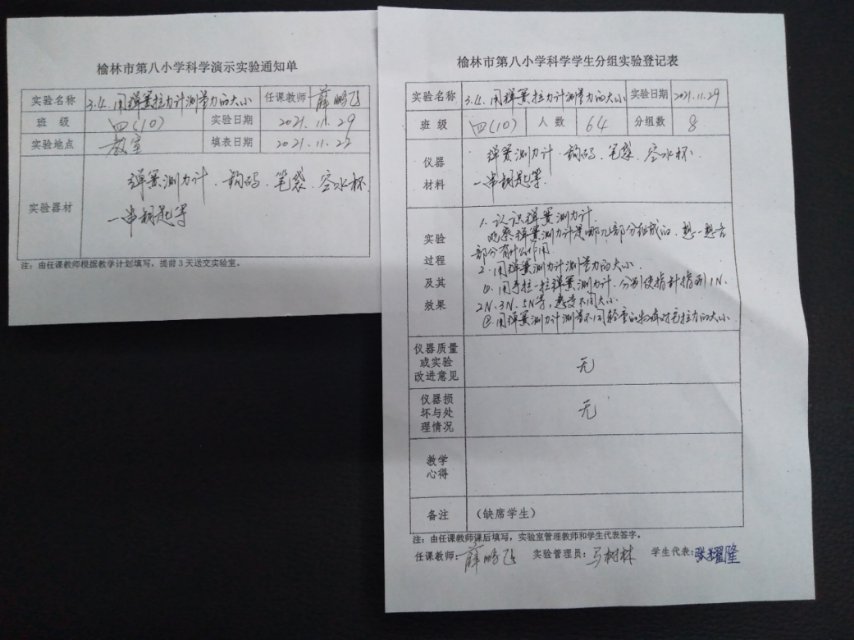 榆林市第八小学科学演示实验通知单
实验名称 3.4.用弹簧拉力计测量力的大小 任课教师 薛鹏飞
班 级 四(10) 实验日期 2021.11.29
实验地点 教室 填表日期 2021.11.22
实验器材 弹簧测力计、钩码、笔袋、空水杯、
一串钥匙等
注：由任课教师根据教学计划填写，提前3天送交实验室。
榆林市第八小学科学学生分组实验登记表
实验名称 3.4.用弹簧拉力计测量力的大小 实验日期 2021.11.29
班 级 四(10) 人 数 64 分组数 8
仪器 弹簧测力计、钩码、笔袋、空水杯、
材料 一串钥匙等.
实验
过程
及其
效果
1.认识弹簧测力计.
观察弹簧测力计是哪几部分组成的,想一想各
部分有什么作用.
2.用弹簧测力计测量力的大小.
①.用手拉一拉弹簧测力计,分别使指针指到1N、
2N、3N、5N等,感受不同大小.
②.用弹簧测力计测量不同轻重的物体对它拉力的大小
仪器质量
或实验
改进意见
无
仪器损
坏与处
理情况
无
教学
心得
备注 （缺席学生）
注：由任课教师课后填写，实验室管理教师和学生代表签字。
任课教师：薛鹏飞 实验管理员：马树林 学生代表：张耀隆